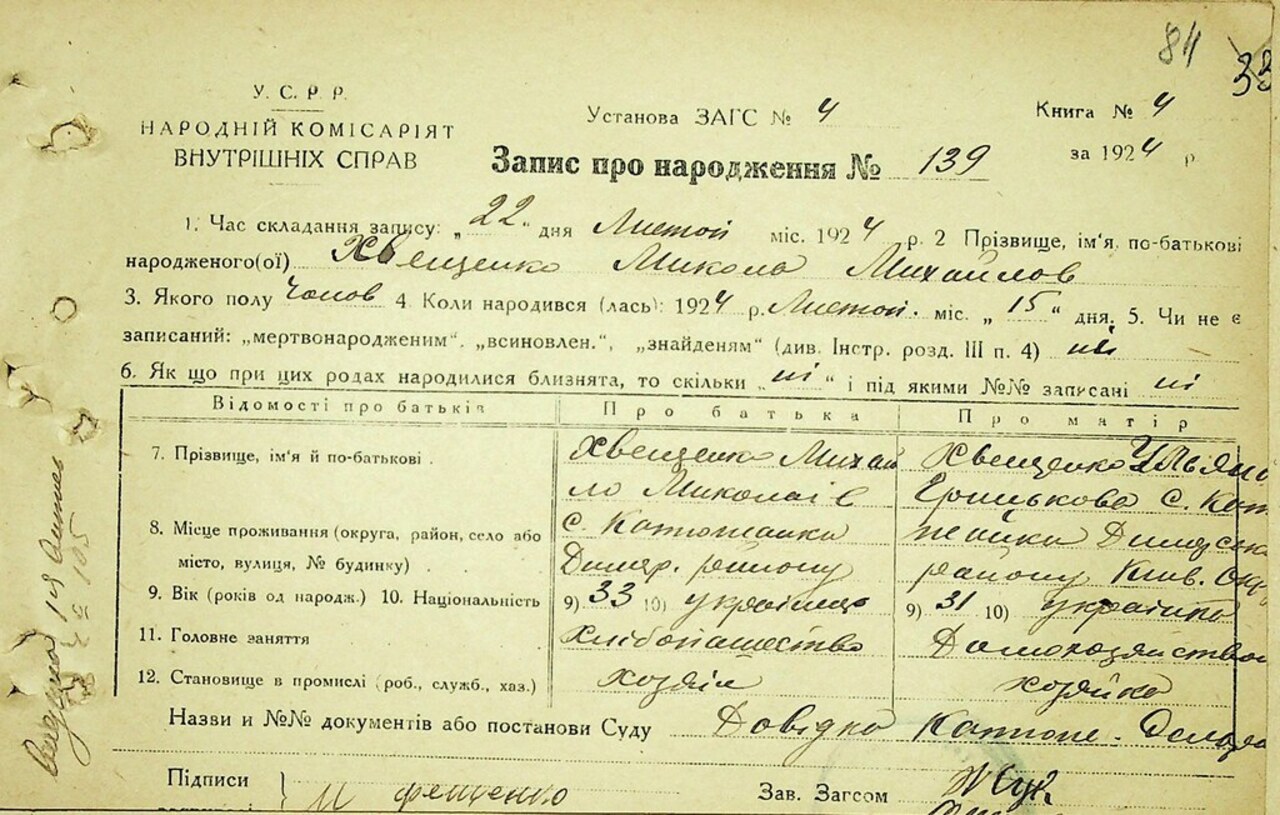 84 33
У. С. Р. Р.
НАРОДНІЙ КОМІСАРІЯТ
ВНУТРІШНІХ СПРАВ
Установа ЗАГС № 4
Книга № 4
за 1924 р
Запис про народження № 139
1. Час складання запису: „22“ дня Лютой міс. 1924 р. 2 Прізвище, ім'я, по-батькові
народженого(ої) Хвещенко Микола Михайлов
3. Якого полу Чолов 4. Коли народився (лась): 1924 р. Лютой. міс. „15“ дня, 5. Чи не є
записаний: „мертвонародженим“, „всиновлен.“, „знайденям“ (див. Інстр. розд. III п. 4) ні
6. Як що при цих родах народилися близнята, то скільки „ні“ і під якими №№ записані ні
Відомості про батьків Про батька Про матір
7. Прізвище, ім'я й по-батькові . Хвещенко Михай Хвещенко Ульяна
ло Миколаїв Грицькова с. Кат
8. Місце проживання (округа, район, село або с. Катюжанка Димерск
місто, вулиця, № будинку) . Димер. району району Київ. Окр
9. Вік (років од народж.) 10. Національність 9) 33 10) українець 9) 31 10) українка
11. Головне заняття Хлібопашество Домохозяйством
12. Становище в промислі (роб., служб., хаз.) хозяін хозяйка
Назви и №№ документів або постанови Суду Довідка Катюж.
Підписи
Фещенко
Зав. Загсом Жук